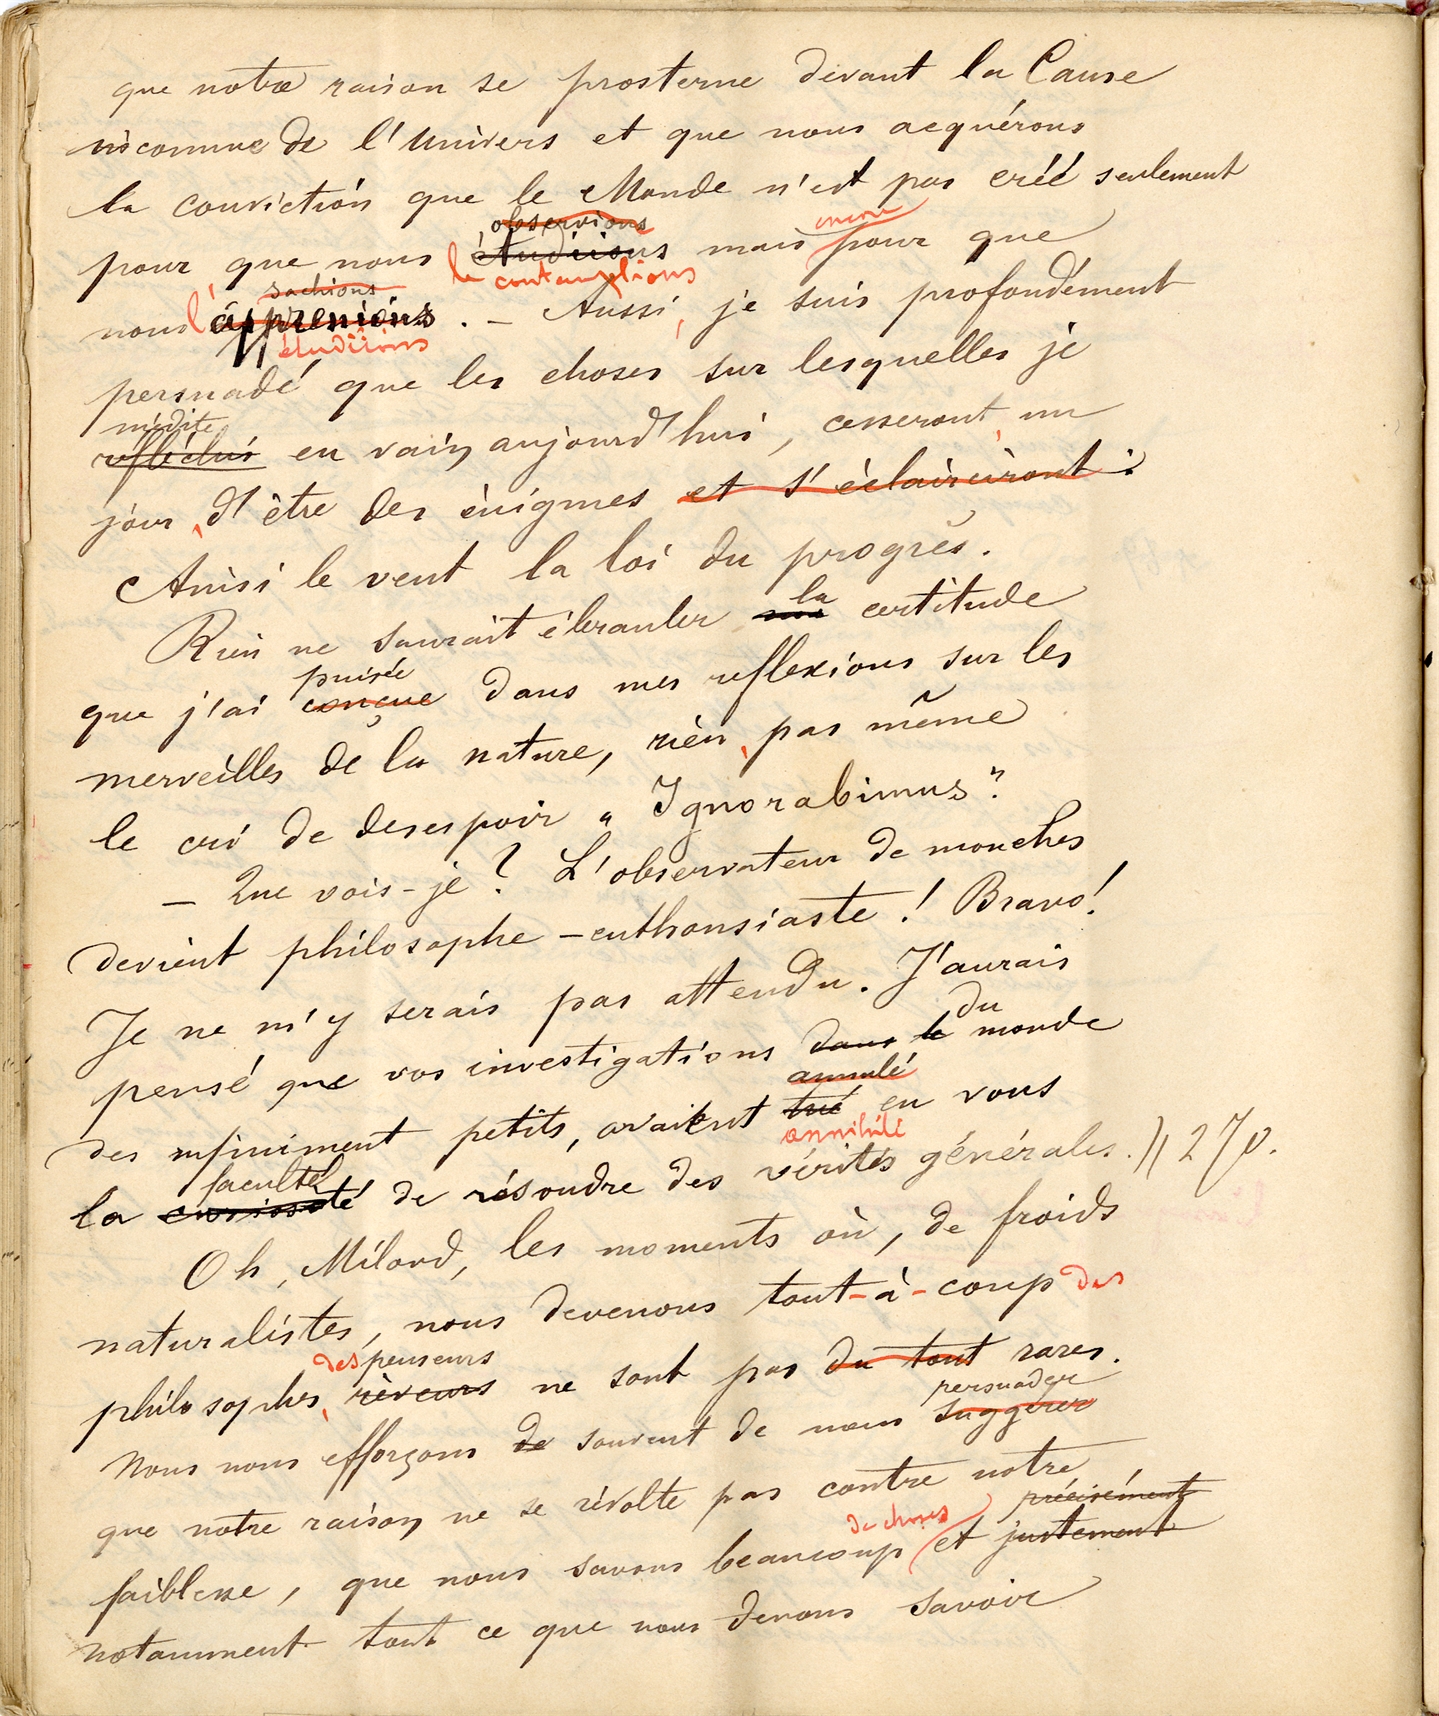 que notre raison se prosterne devant la Cause
inconnue de l'Univers et que nous acquérons
la conviction que le Monde n'est pas créé seulement
observions encore
pour que nous étudiions mais pour que
le contemplions
sachions
nous l'apprenions . — Aussi, je suis profondément
étudiions
persuadé que les choses sur lesquelles je
médite
réfléchis en vain aujourd'hui, cesseront, un
jour, d'être des énigmes et s'éclairciront :
Ainsi le veut la loi du progrès.
la
Rien ne saurait ébranler certitude
puisée
que j'ai conçue dans mes reflexions sur les
merveilles de la nature, rien, pas même
le cri de desespoir „ Ignorabimus".
— Que vois-je ? L'observateur de mouches
devient philosophe — enthousiaste ! Bravo!
Je ne m'y serais pas attendu. J'aurais
du
pensé que vos investigations dans le monde
annulé
des infiniment petits, avaient tué en vous
annihilé
faculté
la curiosité de résoudre des vérités générales. )) 270.
Oh, Milord, les moments où, de froids
naturalistes, nous devenons tout-à-coup des
des penseurs
philosophes, rêveurs ne sont pas du tout rares.
persuader
Nous nous efforçons de souvent de nous suggérer
que notre raison ne se révolte pas contre notre
de choses précisément
faiblesse, que nous savons beaucoup et justement
notamment tout ce que nous devons savoir